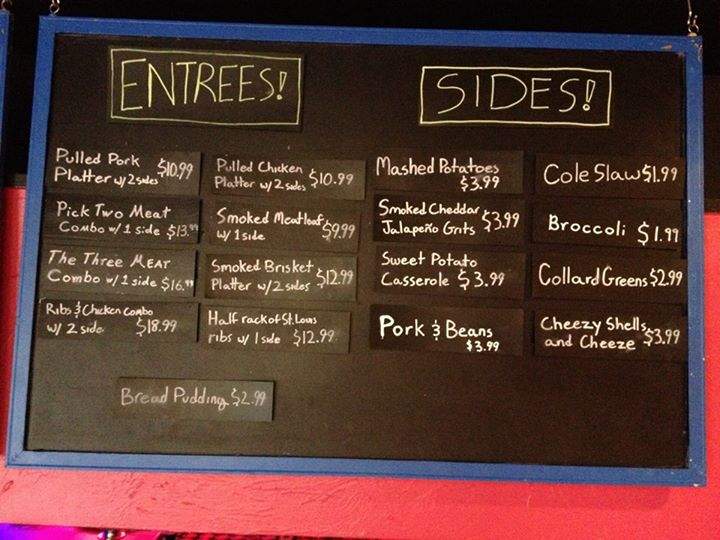 ENTREES!
Pulled Pork $10.99
Platter w/2 sides
Pulled Chicken
Platter w/ 2 sides $10.99
Pick Two Meat
Combo w/ 1 side $13.99
Smoked Meatloaf
w/ 1 side $9.99
The Three MEAT
Combo w/ 1 side $16.99
Smoked Brisket
Platter w/ 2 sides $12.99
Ribs & Chicken Combo
w/ 2 side $18.99
Half rack of St. Louis
ribs w/ 1 side $12.99
Bread Pudding $2.99
SIDES!
Mashed Potatoes
$3.99
Cole Slaw $1.99
Smoked Cheddar
Jalapeño Grits $3.99
Broccoli $1.99
Sweet Potato
Casserole $3.99
Collard Greens $2.99
Pork & Beans
$3.99
Cheezy Shells
and Cheeze $3.99